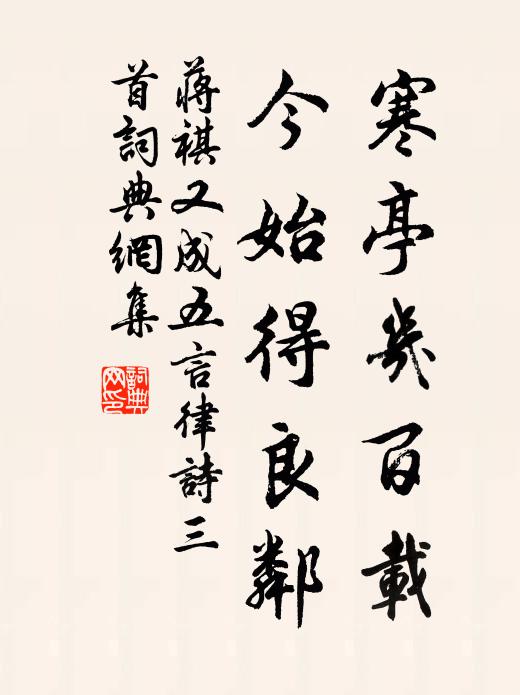 寒亭幾百載
今始得良鄰
蔣祺又成五言律詩三
首詞典網集
詞典
网印